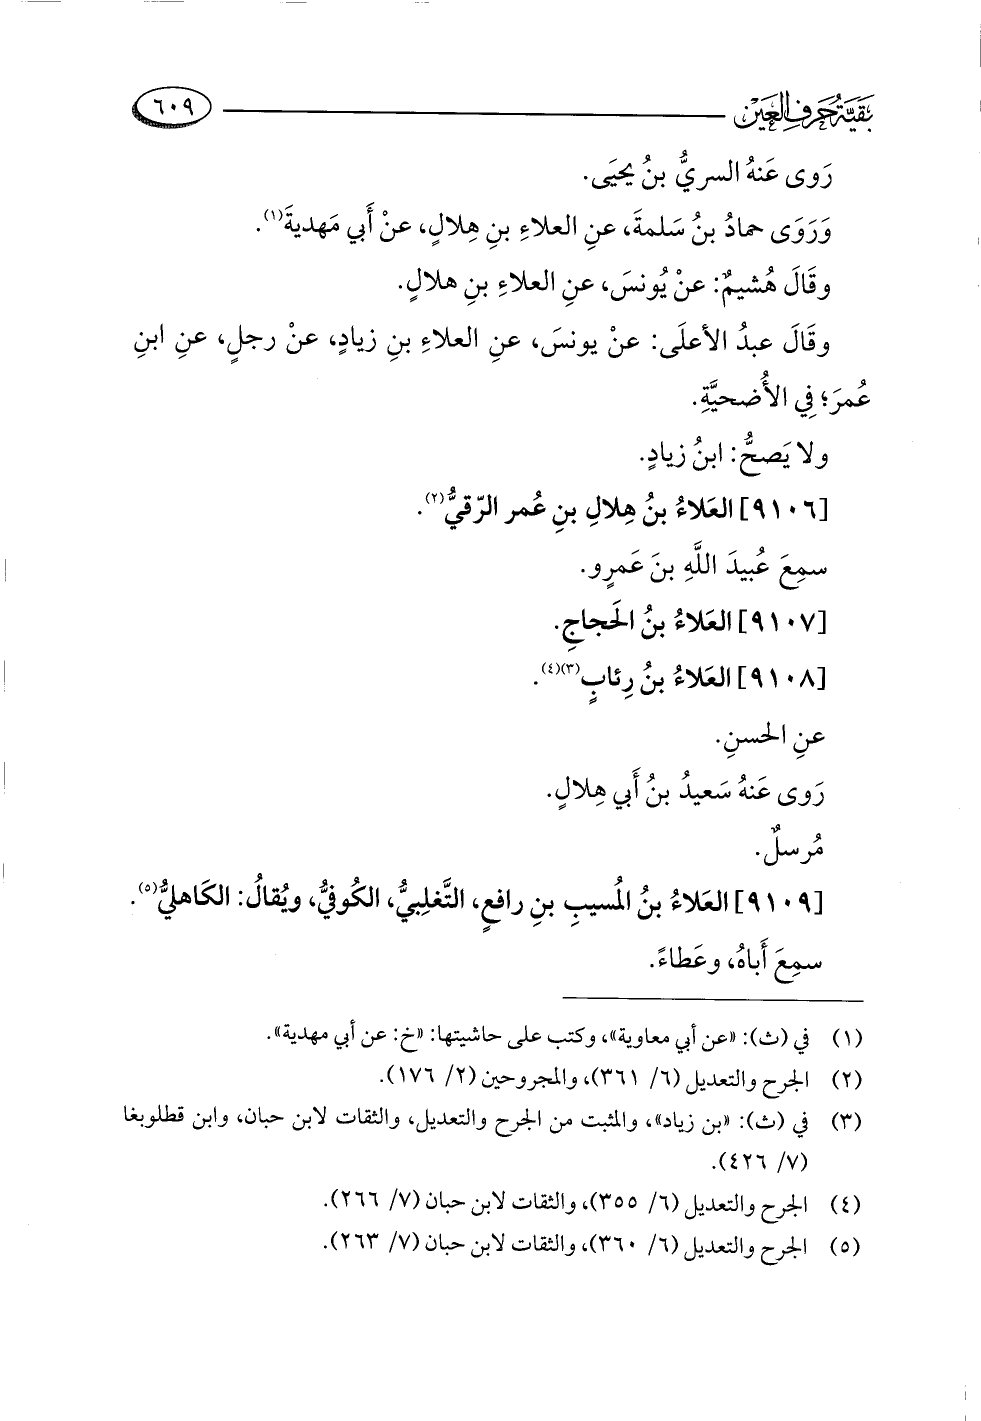 بَقِيَّةُ حَرفِ العَيْن
٦٠٩
رَوى عَنهُ السريُّ بنُ يحيَى.
وَرَوَى حمادُ بنُ سَلمةَ، عنِ العلاءِ بنِ هِلالٍ، عنْ أَبي مَهديةَ(١).
وقَالَ هُشيمٌ: عنْ يُونسَ، عنِ العلاءِ بنِ هلالٍ.
وقَالَ عبدُ الأعلَى: عنْ يونسَ، عنِ العلاءِ بنِ زيادٍ، عنْ رجلٍ، عنِ ابنِ
عُمرَ؛ فِي الأُضحيَّةِ.
ولا يَصحُّ: ابنُ زيادٍ.
[٩١٠٦] العَلاءُ بنُ هِلالِ بنِ عُمر الرّقيُّ(٢).
سمِعَ عُبيدَ اللَّهِ بنَ عَمرٍو.
[٩١٠٧] العَلاءُ بنُ الحَجاجِ.
[٩١٠٨] العَلاءُ بنُ رِئابٍ(٣)(٤).
عنِ الحسنِ.
رَوى عَنهُ سَعيدُ بنُ أَبي هِلالٍ.
مُرسلٌ.
[٩١٠٩] العَلاءُ بنُ المُسيبِ بنِ رافعٍ، التَّغلِبيُّ، الكُوفيُّ، ويُقالُ: الكَاهليُّ(٥).
سمِعَ أَباهُ، وعَطاءً.
(١) في (ث): «عن أبي معاوية»، وكتب على حاشيتها: «خ: عن أبي مهدية».
(٢) الجرح والتعديل (٦/ ٣٦١)، والمجروحين (٢/ ١٧٦).
(٣) في (ث): «بن زياد»، والمثبت من الجرح والتعديل، والثقات لابن حبان، وابن قطلوبغا
(٧/ ٤٢٦).
(٤) الجرح والتعديل (٦/ ٣٥٥)، والثقات لابن حبان (٧/ ٢٦٦).
(٥) الجرح والتعديل (٦/ ٣٦٠)، والثقات لابن حبان (٧/ ٢٦٣).